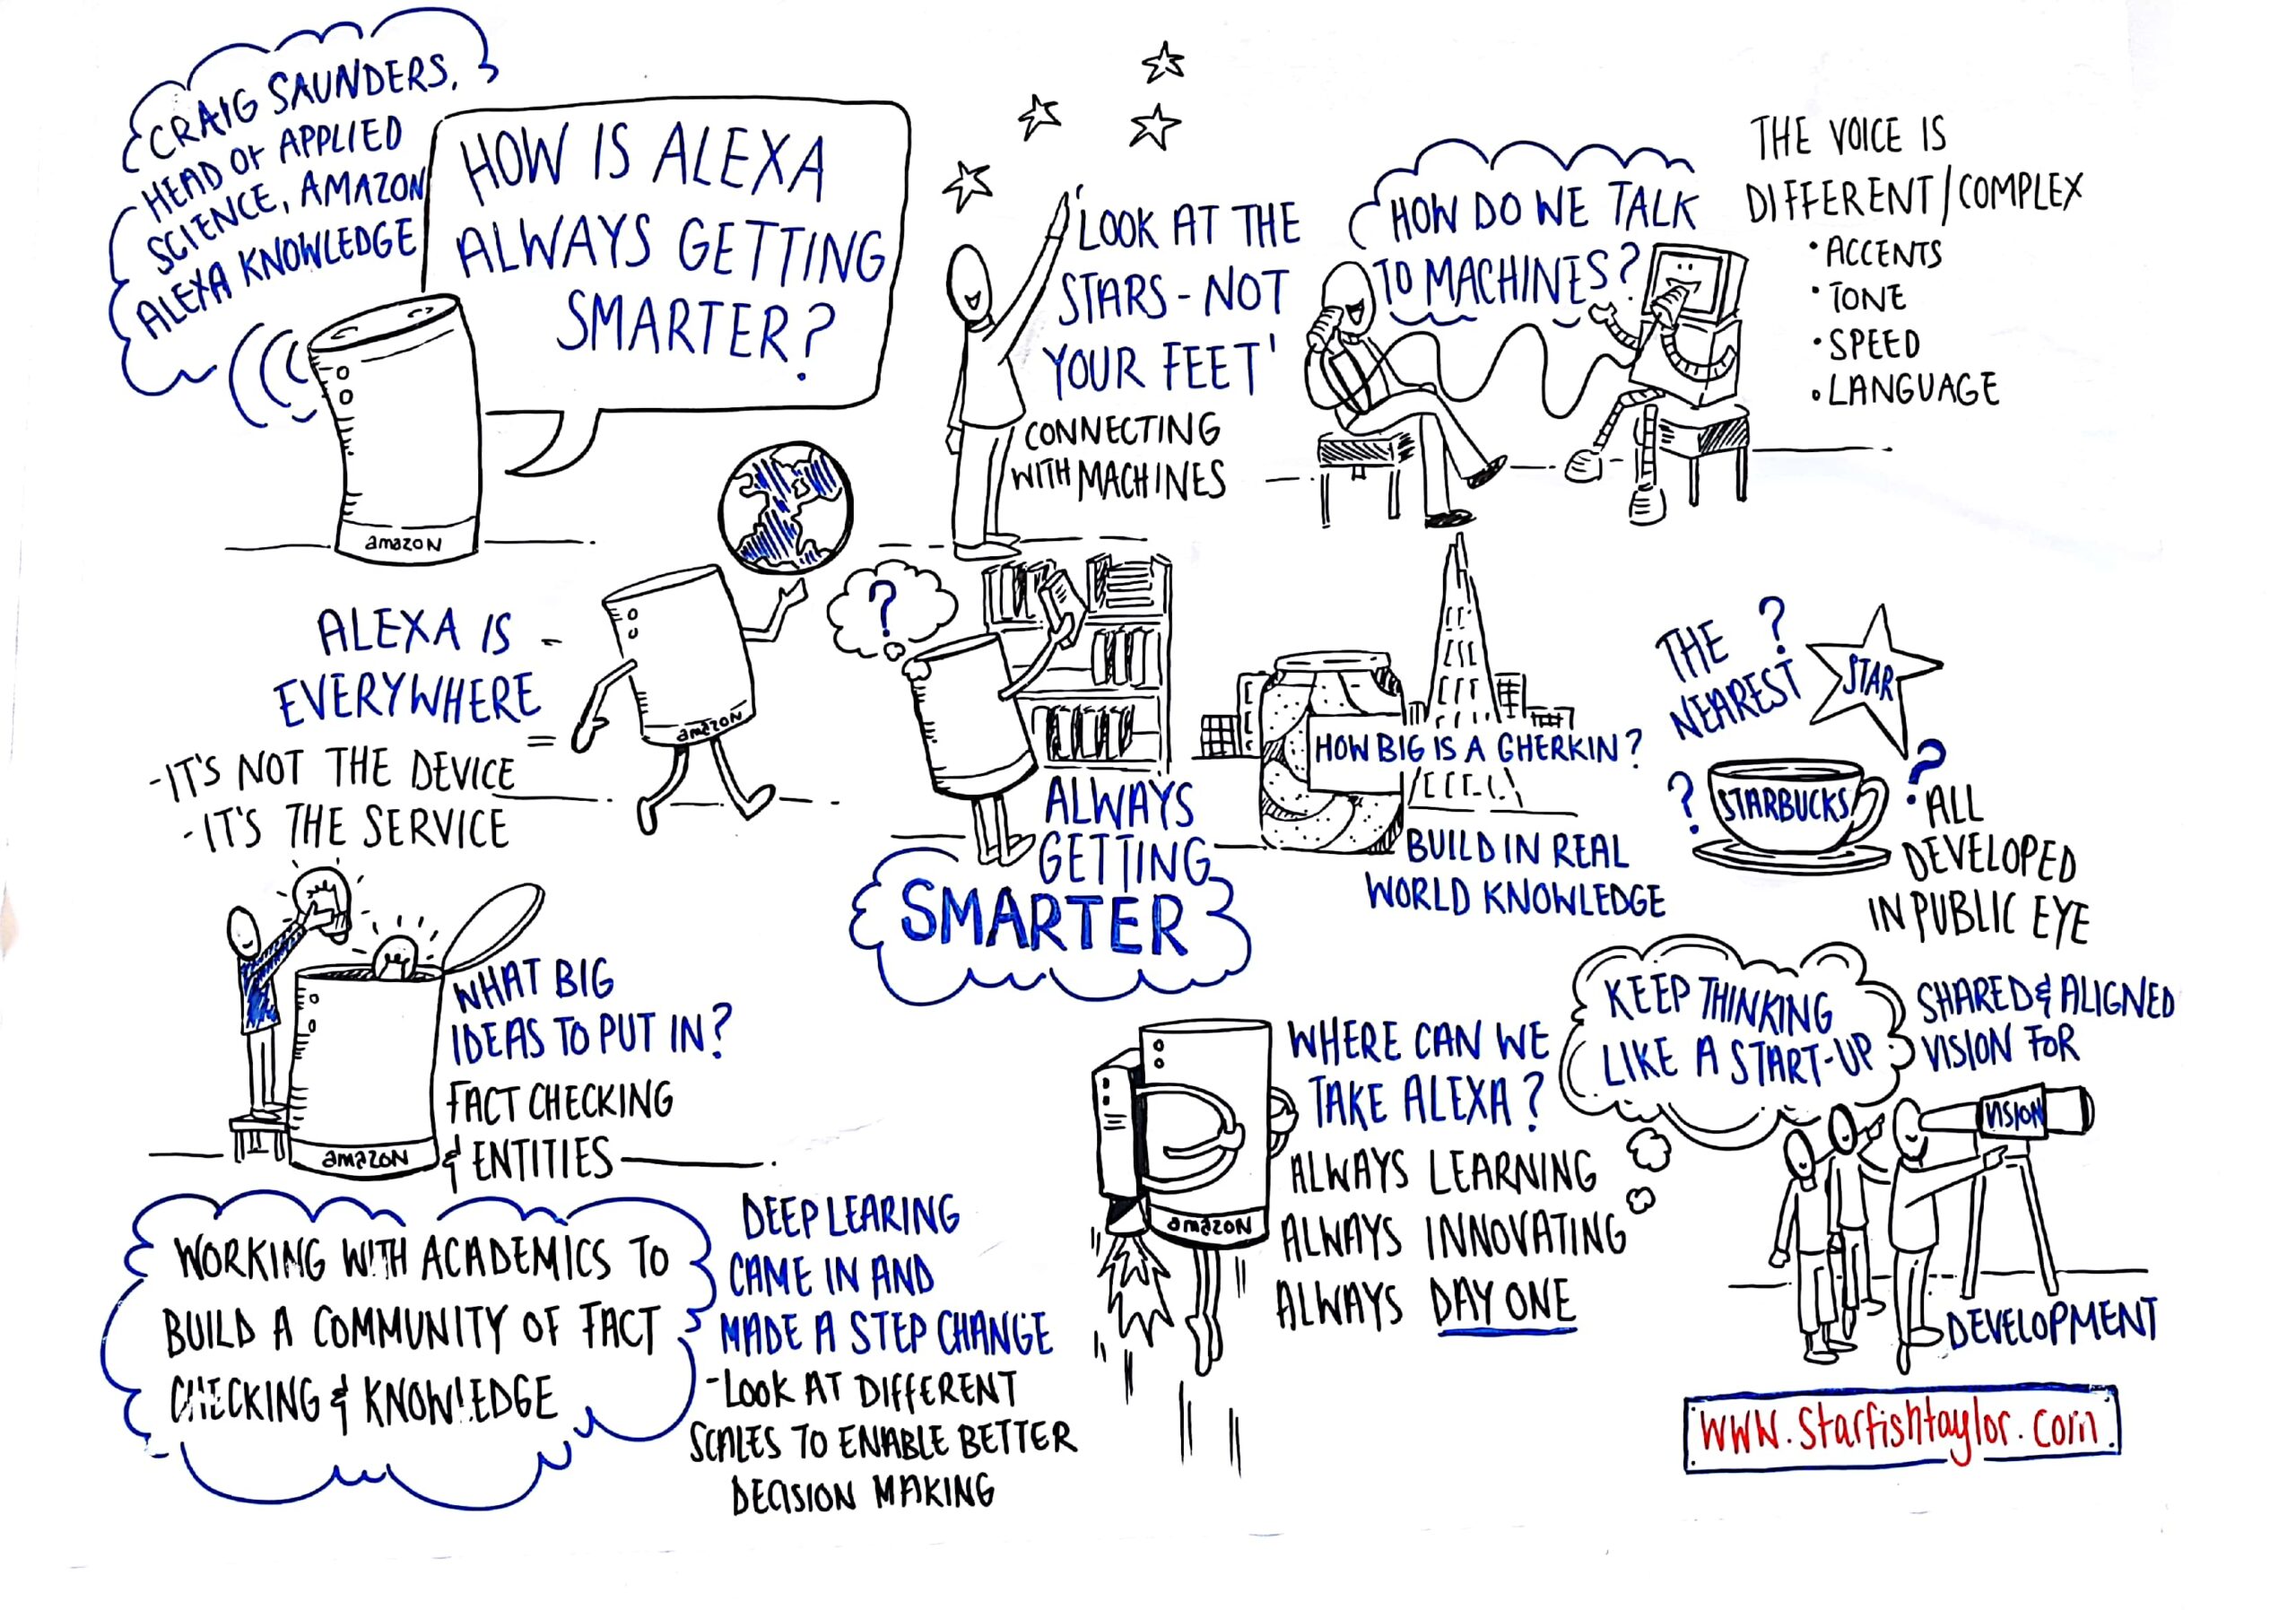 CRAIG SAUNDERS,
HEAD OF APPLIED
SCIENCE, AMAZON
ALEXA KNOWLEDGE
HOW IS ALEXA
ALWAYS GETTING
SMARTER?
amazon
'LOOK AT THE
STARS - NOT
YOUR FEET'
CONNECTING
WITH MACHINES
HOW DO WE TALK
TO MACHINES?
THE VOICE IS
DIFFERENT/COMPLEX
• ACCENTS
• TONE
• SPEED
• LANGUAGE
ALEXA IS
EVERYWHERE
- IT'S NOT THE DEVICE
- IT'S THE SERVICE
amazon
?
ALWAYS
GETTING
SMARTER
HOW BIG IS A GHERKIN?
BUILD IN REAL
WORLD KNOWLEDGE
THE ?
NEAREST
STAR
? STARBUCKS ?
• ALL
DEVELOPED
IN PUBLIC EYE
WHAT BIG
IDEAS TO PUT IN?
FACT CHECKING
& ENTITIES
amazon
WORKING WITH ACADEMICS TO
BUILD A COMMUNITY OF FACT
CHECKING & KNOWLEDGE
DEEP LEARING
CAME IN AND
MADE A STEP CHANGE
- LOOK AT DIFFERENT
SCALES TO ENABLE BETTER
DECISION MAKING
amazon
WHERE CAN WE
TAKE ALEXA?
ALWAYS LEARNING
ALWAYS INNOVATING
ALWAYS DAY ONE
KEEP THINKING
LIKE A START-UP
SHARED & ALIGNED
VISION FOR
VISION
DEVELOPMENT
www.starfishtaylor.com